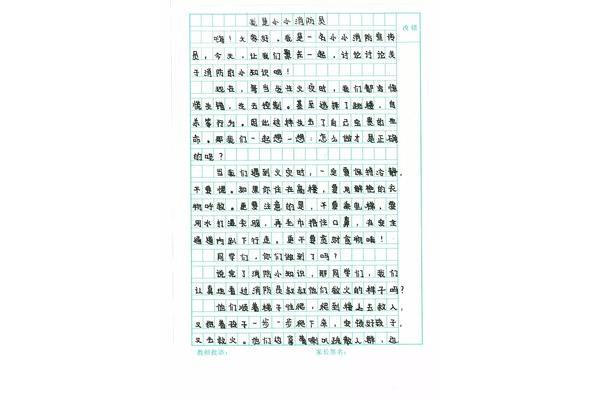 我是小小消防员
改错
嗨！大家好，我是一名小小消防宣传
员，今天，让我们聚在一起，讨论讨论关
于消防的小知识吧！
现在，每当发生火灾时，我们都会惊
慌失措，失去控制。甚至选择了跳楼，自
杀等行为。因此这样失去了自己宝贵的生
命。那我们一起想一想：怎么做才是正确
的呢？
当我们遇到火灾时，一定要保持冷静，
不要慌。如果你住在高楼，要用鲜艳的衣
物呼救。更要注意的是，不要乘电梯，要
用水打湿衣服，再毛巾捂住口鼻，在安全
通道内趴下行走，更不要贪财贪物哦！
同学们，你们做到了吗？
说完了消防小知识，那同学们，我们
认真地看过消防员叔叔他们救火的样子吗？
他们顺着梯子往爬，爬到楼上去救人，
又抱着孩子一步一步爬下来，安顿好孩子，
又去救火。他们边拿着喇叭疏散人群，边
教师批语：
家长签名：